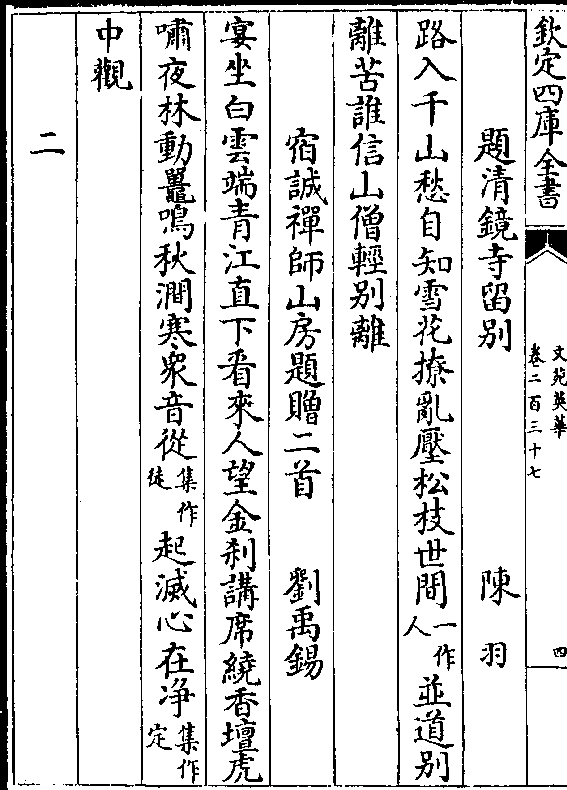 欽定四庫全書
文苑英華
卷二百三十七
四
題清鏡寺留别 陳羽
路入千山愁自知雪花撩亂壓松枝世間一作人並道别
離苦誰信山僧輕别離
宿誠禪師山房題贈二首 劉禹錫
宴坐白雲端青江直下看來人望金刹講席繞香壇虎
嘯夜林動鼉鳴秋澗寒衆音從集作徒起滅心在净集作定
中觀
二